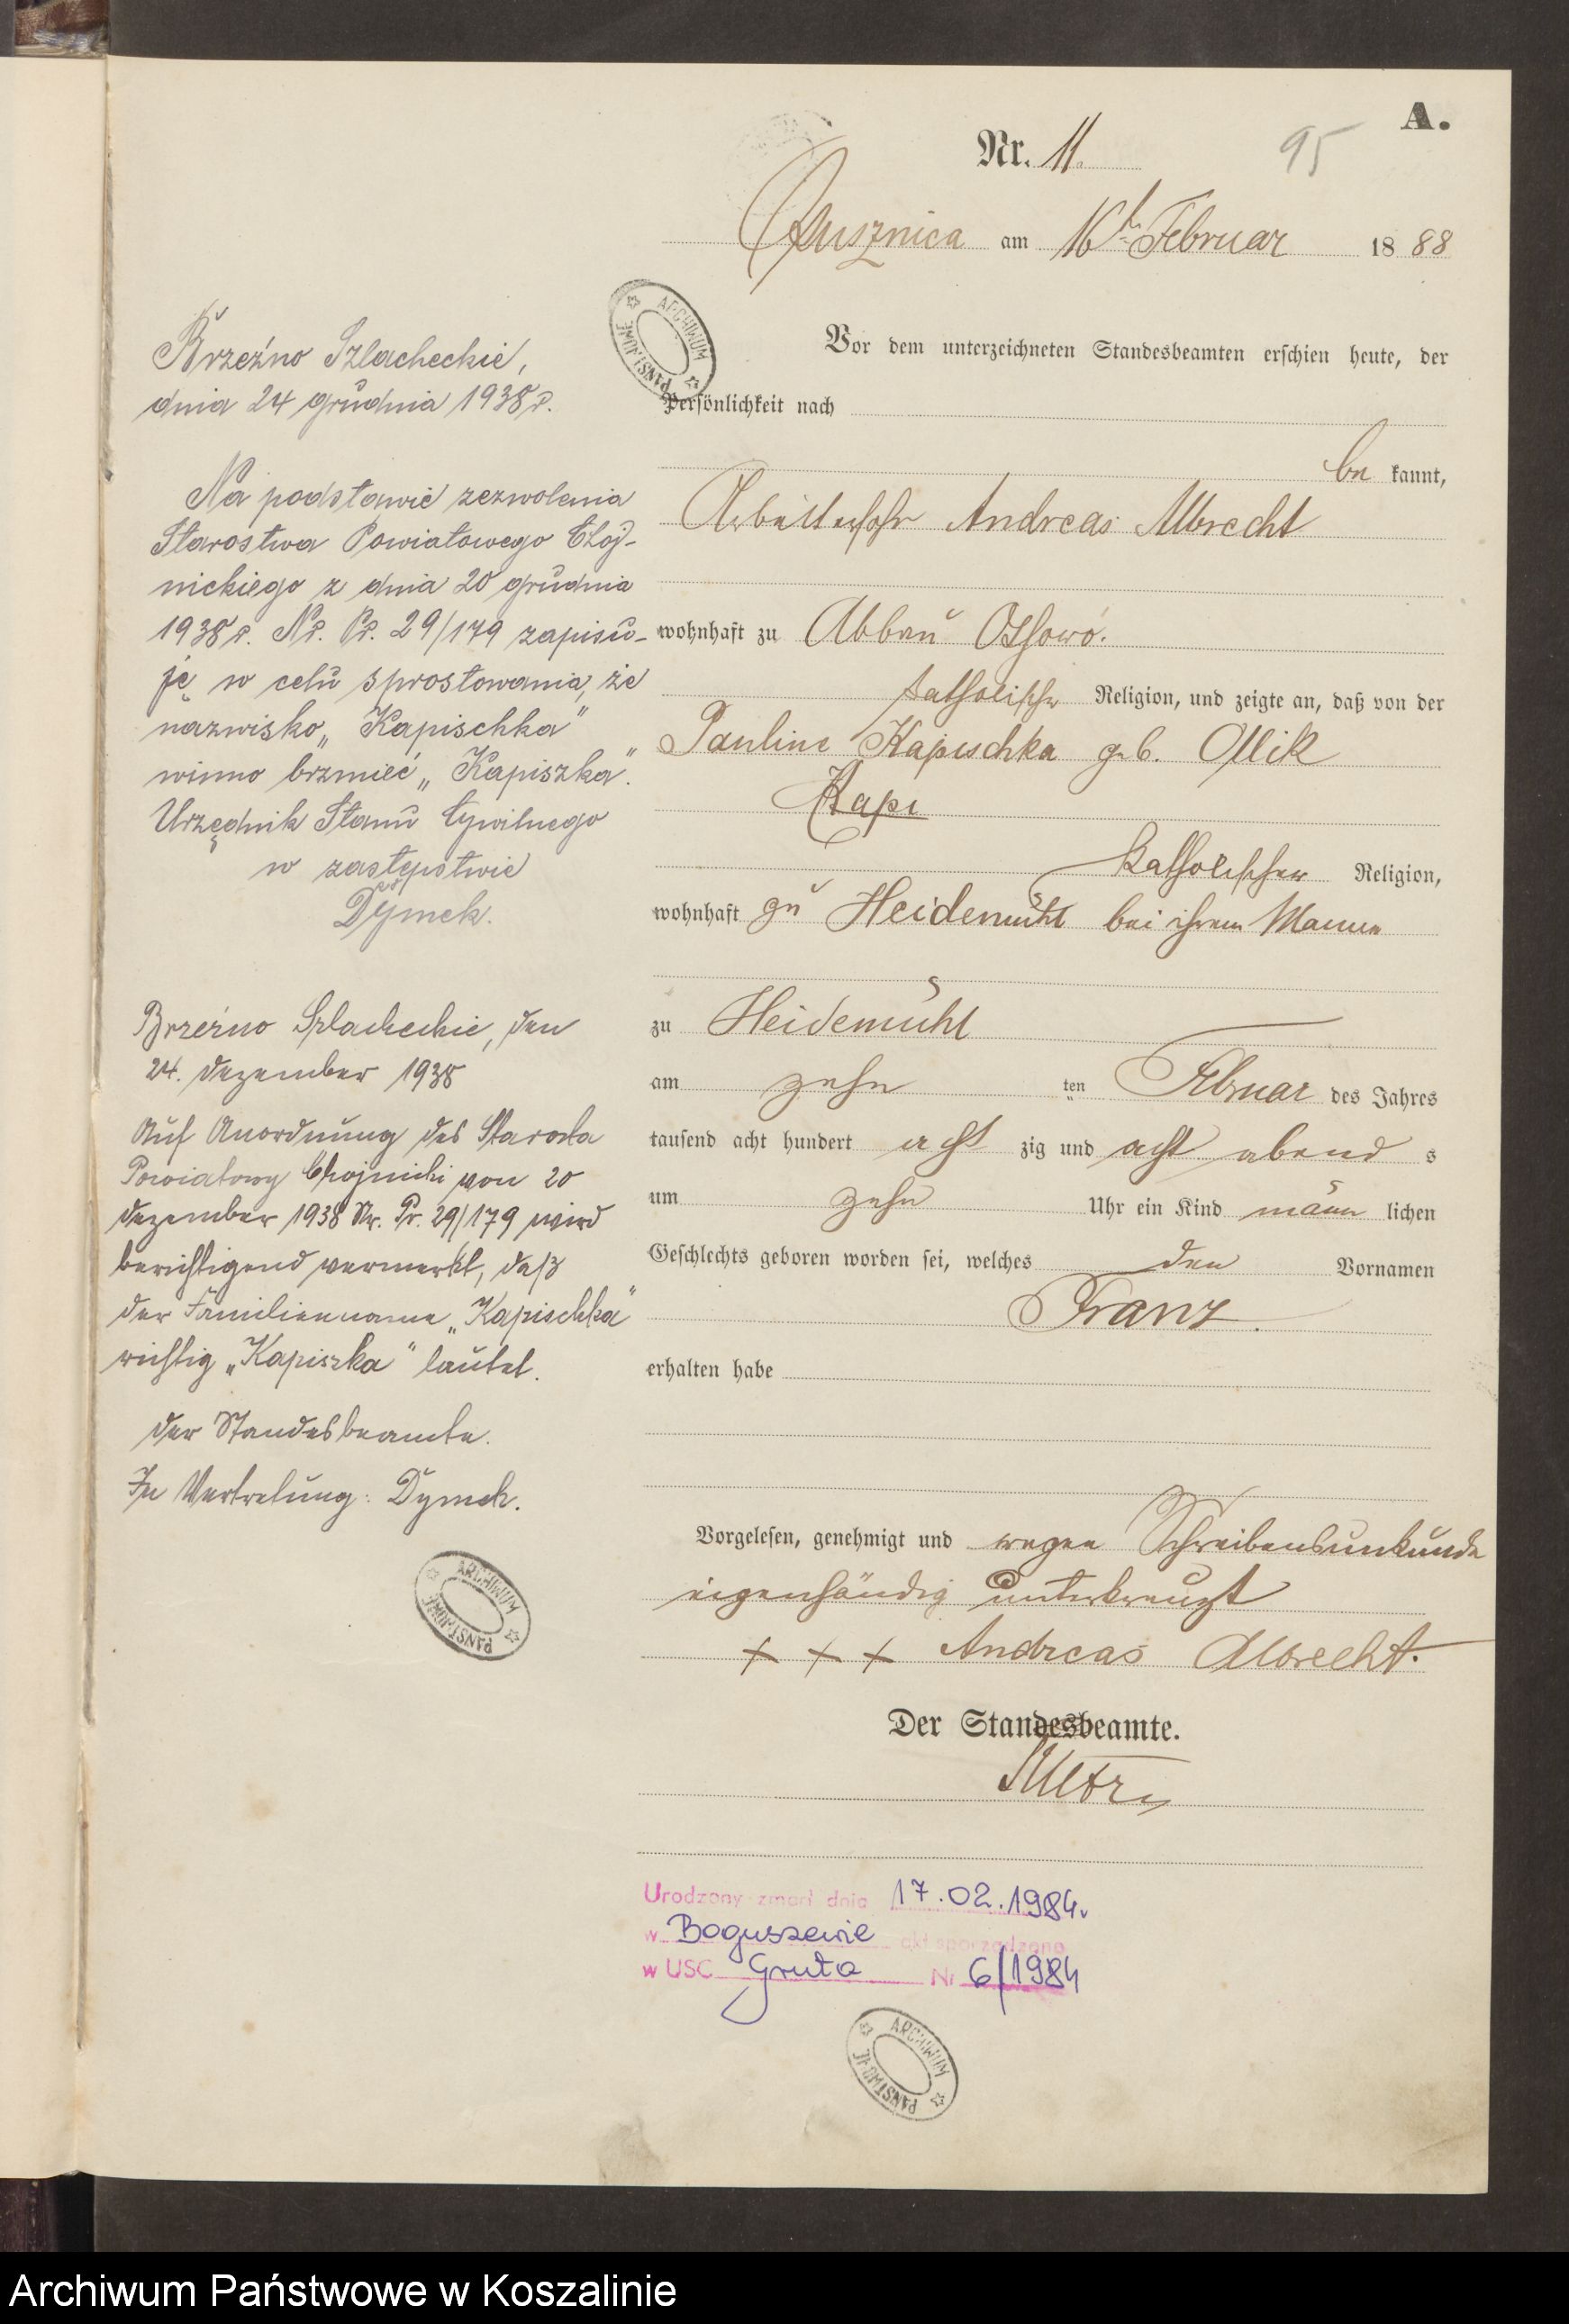 A.
Nr. 11.
95
am 16t Februar 1888
Vor dem unterzeichneten Standesbeamten erschien heute, der
Persönlichkeit nach
be kannt,
Andreas Albrecht
wohnhaft zu Abbau Ossowo.
katholischer Religion, und zeigte an, daß von der
Pauline Kapischka geb. Ollik
Kapi
katholischer Religion,
wohnhaft zu Heidemühl bei ihrem Manne
zu Heidemühl
am zehn ten Februar des Jahres
tausend acht hundert acht zig und acht abend s
um zehn Uhr ein Kind männ lichen
Geschlechts geboren worden sei, welches den Vornamen
Franz.
erhalten habe
Vorgelesen, genehmigt und wegen Schreibensunkunde
eigenhändig unterkreuzt
+ + + Andreas Albrecht.
Der Standesbeamte.
Urodzony zmarł dnia 17.02.1984.
w Boguszewie akt sporządzono
w USC Gruta Nr 6/1984
Brzeźno Szlacheckie,
dnia 24 grudnia 1938 r.
Na podstawie zezwolenia
Starostwa Powiatowego Choj-
nickiego z dnia 20 grudnia
1938 r. Nr. Pr. 29/179 zapisu-
ję w celu sprostowania, że
nazwisko „Kapischka"
winno brzmieć „Kapiszka".
Urzędnik Stanu Cywilnego
w zastępstwie
Dymek.
Brzeźno Szlacheckie, den
24. Dezember 1938
Auf Anordnung des Starosta
Powiatowy Chojnicki von 20
Dezember 1938 Nr. Pr. 29/179 wird
berichtigend vermerkt, daß
der Familienname „Kapischka"
richtig „Kapiszka" lautet.
Der Standesbeamte.
In Vertretung: Dymek.
ARCHIWUM PAŃSTWOWE
ARCHIWUM PAŃSTWOWE
ARCHIWUM PAŃSTWOWE
Archiwum Państwowe w Koszalinie